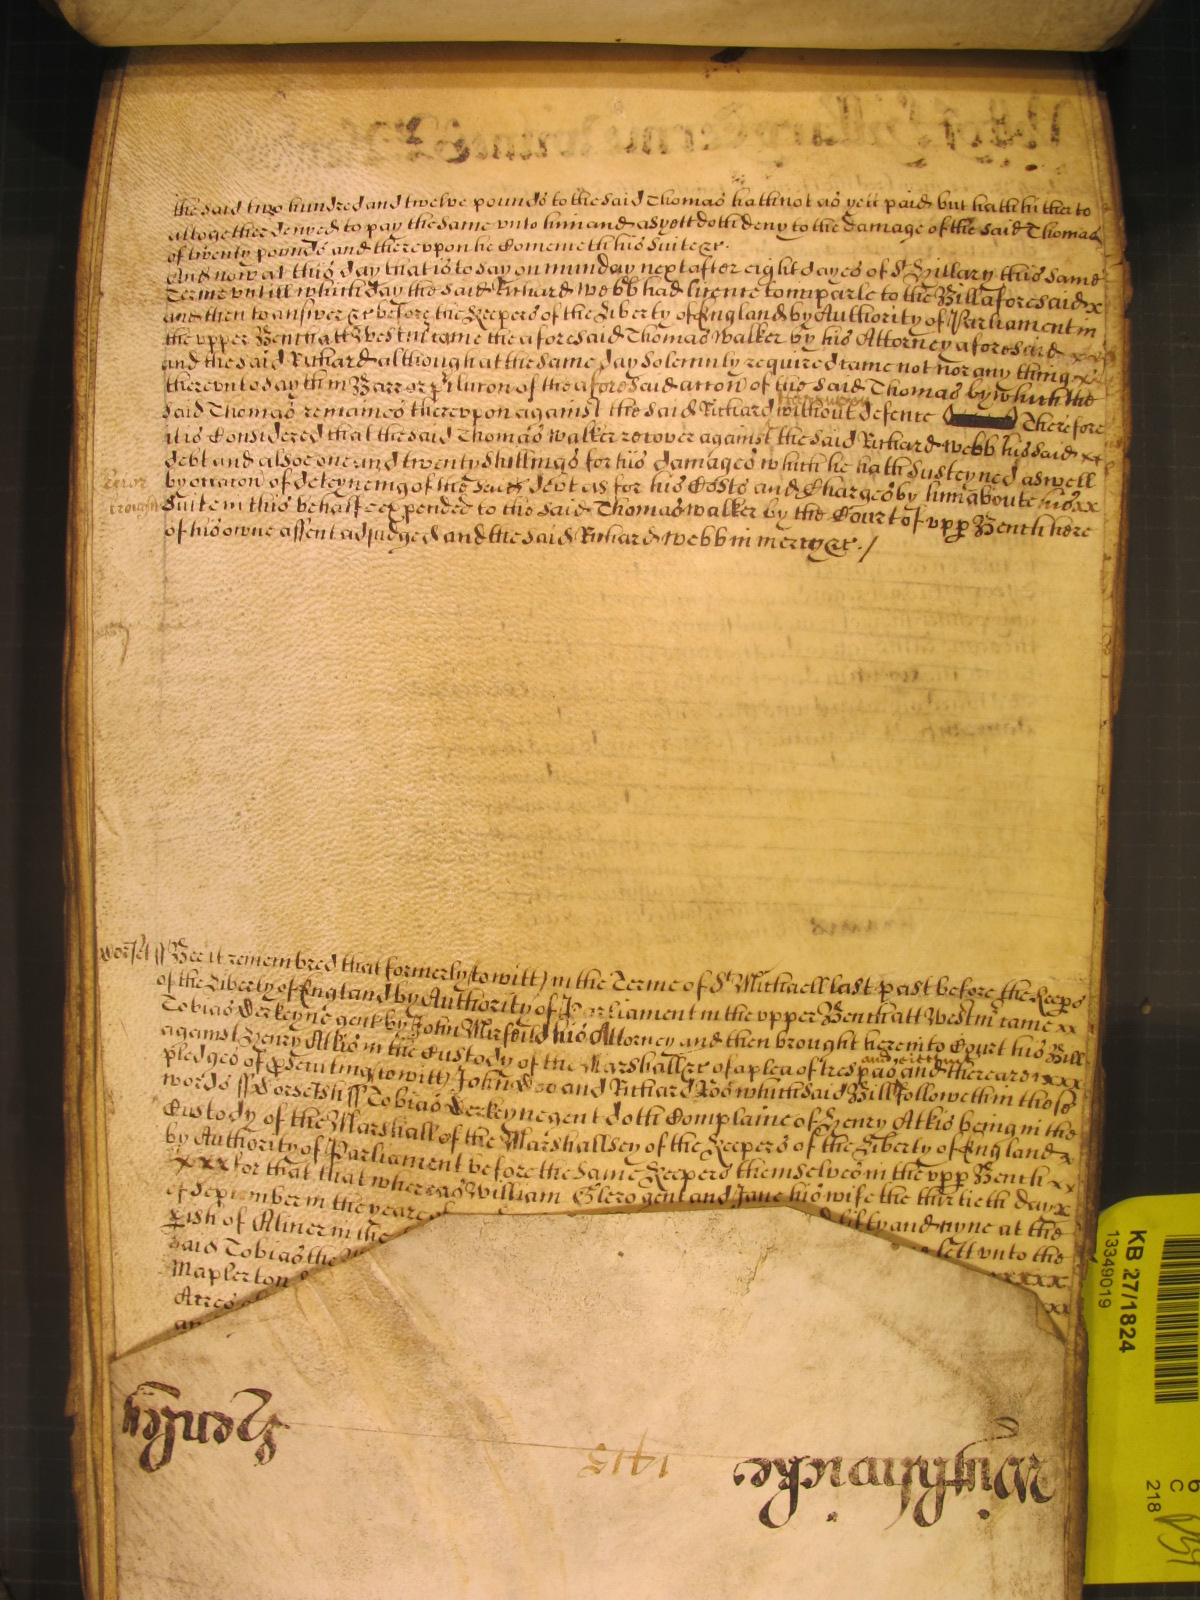 the said two hundred and twelve pounds to the said Thomas hath not as yett paid but hath hitherto
altogether denyed to pay the same vnto him and as yett doth deny to the damage of the said Thomas
of twenty pounds and therevpon he Comenceth his suite &c.
And now at this day that is to say on munday next after eight dayes of St Hillary this same
Terme vntill which day the said Richard Webb had licence to imparle to the Bill aforesaid x
and then to answer &c before the Keepers of the Liberty of England by Authority of Parliament in
the vpper Bench att Westmr came the aforesaid Thomas Walker by his Attorney aforesaid xx
and the said Richard although at the same day Solemnly required came not nor any thing x
therevnto sayth in Barr or preclusion of the aforesaid accon of the said Thomas by which the
said Thomas remaines therevpon against the said Richard without defence Therefore
it is Considered that the said Thomas Walker recover against the said Richard Webb his said xx
debt and alsoe one and twenty shillings for his damages which he hath susteyned aswell
Error
by occacon of deteyneing of the said debt as for his Costs and Charges by him aboute his xx
suite in this behalfe expended to the said Thomas Walker by the Court of vpp Bench here
of his owne assent adjudged and the said Richard Webb in mercy &c. /
Dorset ss Bee it remembred that formerly (to witt) in the Terme of St Michaell last past before the Keeps
of the Liberty of England by Authority of Parliament in the vpper Bench att Westmr came xx
Tobias Derkeyne gent by John Mirfeild his Attorney and then brought here into Court his Bill
against Henry Atkis in the Custody of the Marshall &c of a plea of trespas and eiectment and there are xxx
pledges of prosecuting (to witt) John Doo and Richard Roo which said Bill followeth in these
words ss Dorsetsh ss Tobias Derkeyne gent doth Complaine of Henry Atkis being in the
Custody of the Marshall of the Marshallsey of the Keepers of the Liberty of England x
by Authority of Parliament before the same Keepers themselves in the vpp Bench xx
xxx for that that whereas William Glero gent and Jane his wife the thirtieth day x
of September in the yeare of fifty and nyne at the
pish of Almer in the lett vnto the
said Tobias the xxxx
Maplerton xx
Acres of
an
Henley
1415
Wittsheircke
KB 27/1824
13349019
6
C
218